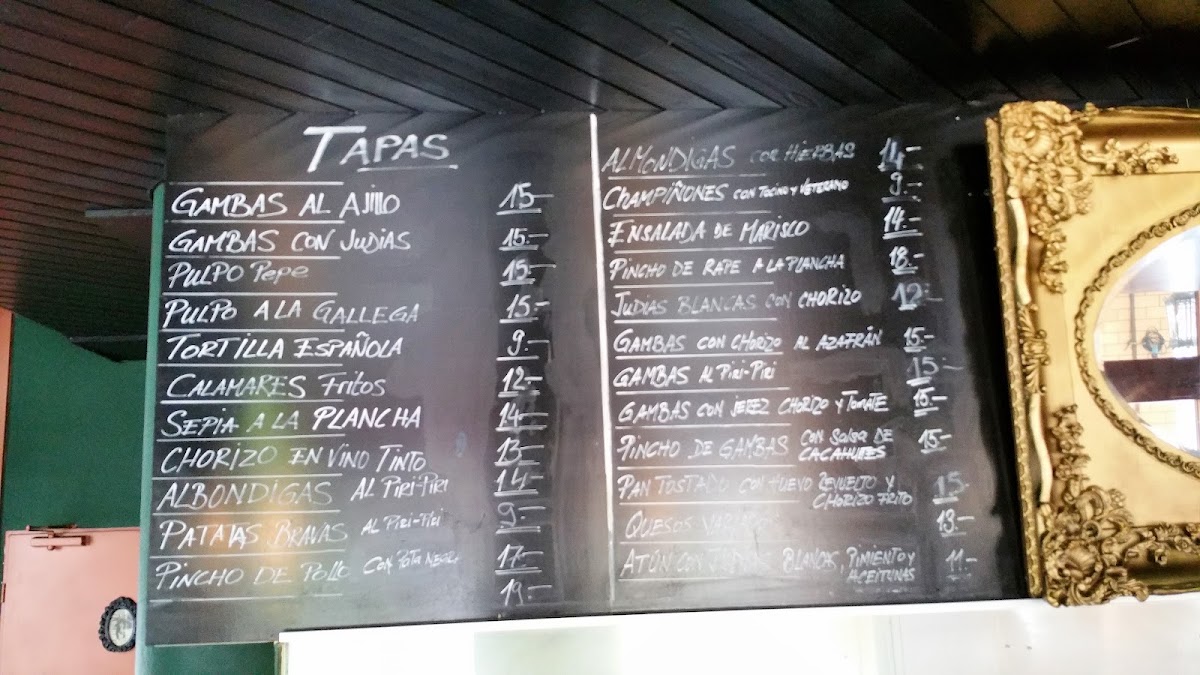 TAPAS
GAMBAS AL AJILLO 15.-
GAMBAS CON JUDIAS 15.-
PULPO Pepe 15.-
PULPO A LA GALLEGA 15.-
TORTILLA ESPAÑOLA 9.-
CALAMARES Fritos 12.-
SEPIA A LA PLANCHA 14.-
CHORIZO EN VINO TINTO 13.-
ALBONDIGAS AL Piri-Piri 14.-
PATATAS BRAVAS AL Piri-Piri 9.-
PINCHO DE POLLO CON PATA NEGRA 17.-
19.-
ALMONDIGAS CON HIERBAS 14.-
CHAMPIÑONES CON TOCINO Y VETERANO 9.-
ENSALADA DE MARISCO 14.-
PINCHO DE RAPE A LA PLANCHA 18.-
JUDIAS BLANCAS CON CHORIZO 12.-
GAMBAS CON CHORIZO AL AZAFRÁN 15.-
GAMBAS AL Piri-Piri 15.-
GAMBAS CON JEREZ CHORIZO Y TOMATE 15.-
PINCHO DE GAMBAS CON SALSA DE
CACAHUETES 15.-
PAN TOSTADO CON HUEVO REVUELTO Y
CHORIZO FRITO 15.-
QUESOS 13.-
ATÚN CON JUDIAS BLANCAS, PIMIENTO Y
ACEITUNAS 11.-